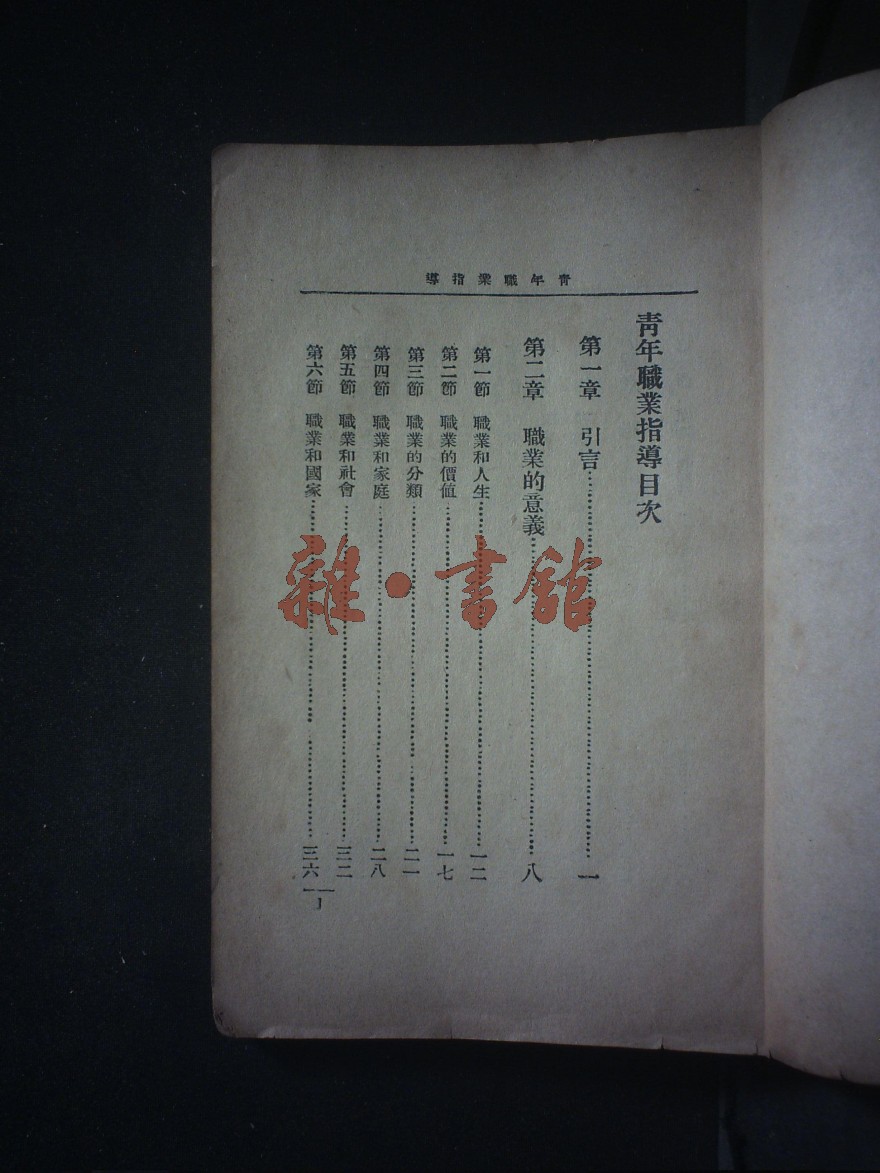 青年職業指導
青年職業指導目次
第一章 引言……………………一
第二章 職業的意義……………………八
第一節 職業和人生……………………一二
第二節 職業的價值……………………一七
第三節 職業的分類……………………二一
第四節 職業和家庭……………………二八
第五節 職業和社會……………………三二
第六節 職業和國家……………………三六
雜·書館